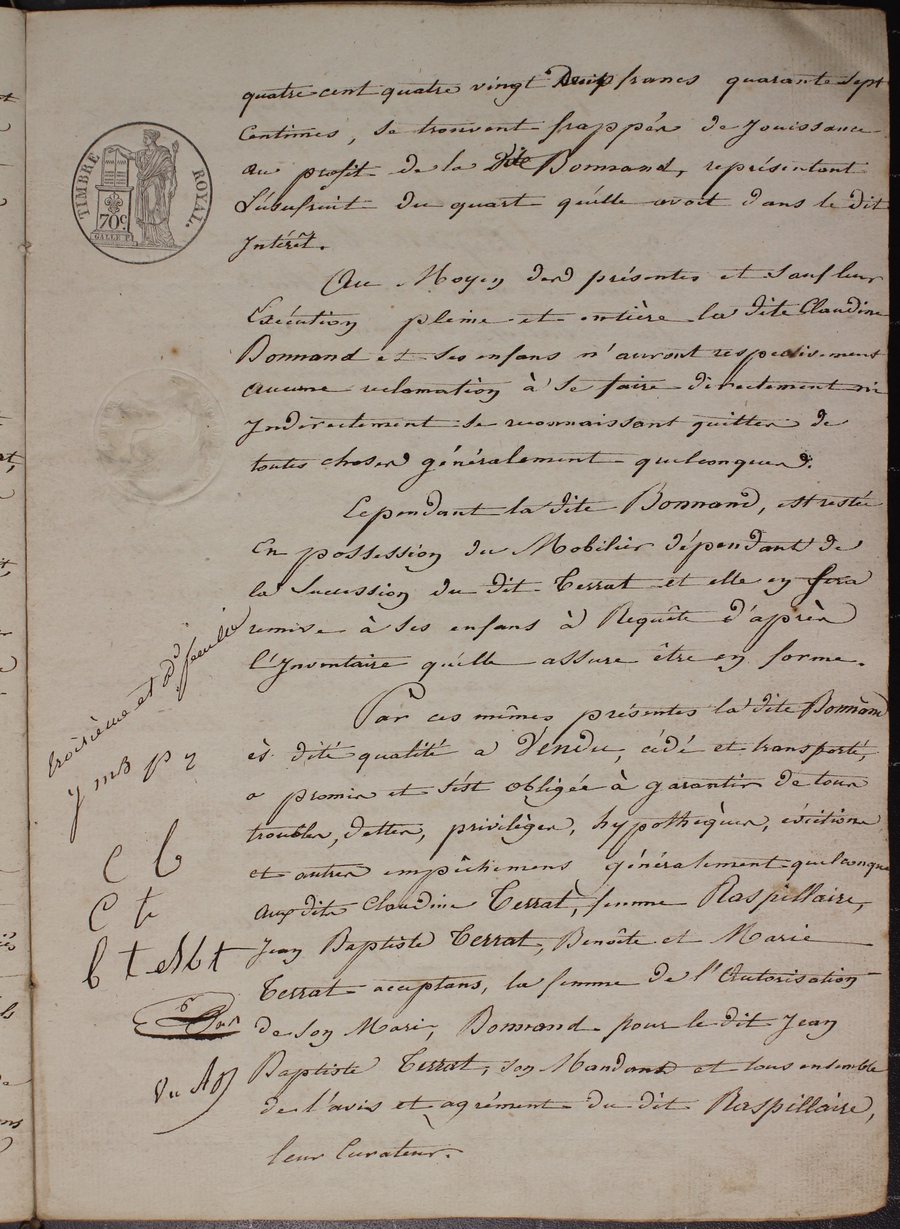 quatre cent quatre vingt francs quarante sept
Centimes, se trouvent frappés de Jouissance
au profit de la Dite Bonnand, représentant
L'usufruit du quart qu'elle avoit dans le dit
Intérêt.
TIMBRE ROYAL.
70c.
GALLE F.
Au Moyen des présentes et sauf leur
Exécution pleine et entière la dite Claudine
Bonnand et ses enfans n'auront respectivement
aucune réclamation à se faire directement ni
Indirectement se reconnaissant quittes de
toutes choses généralement quelconques.
Cependant la dite Bonnand, est restée
En possession du Mobilier dépendant de
la Succession du dit Terrat et elle en fera
remise à ses enfans à Requête d'après
l'Inventaire qu'elle assure être en forme.
Par ces mêmes présentes la dite Bonnand
ès dité qualité a Vendu, cédé et transporté,
a promis et s'est obligée à garantir de tous
troubles, dettes, privilèges, hypothèques, évictions
et autres empêchemens généralement quelconque
aux dits Claudine Terrat, femme Raspillaire,
Jean Baptiste Terrat, Benoîte et Marie
Terrat acceptans, la femme de l'Autorisation
de son Mari, Bonnand pour le dit Jean
Baptiste Terrat, son Mandant et tous ensemble
de l'avis et agrément du dit Raspillaire,
leur Curateur.
troisième et
C b
C t
b t
Vu